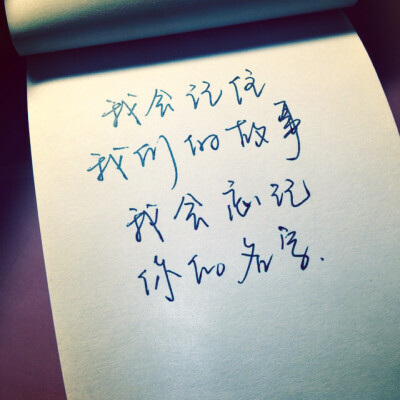 我会记住
我们的故事
我会忘记
你的名字.